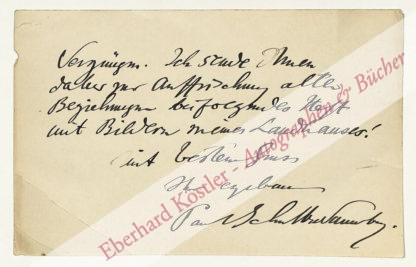 Vergnügen. Ich sende Ihnen
daher zur Auffrischung alter
Beziehungen beifolgendes Heft
mit Bildern meines Landhauses!
mit bestem Gruss
Ihr ergebener
Paul Schultze-Naumburg
Eberhard Köstler - Autographen & Bücher